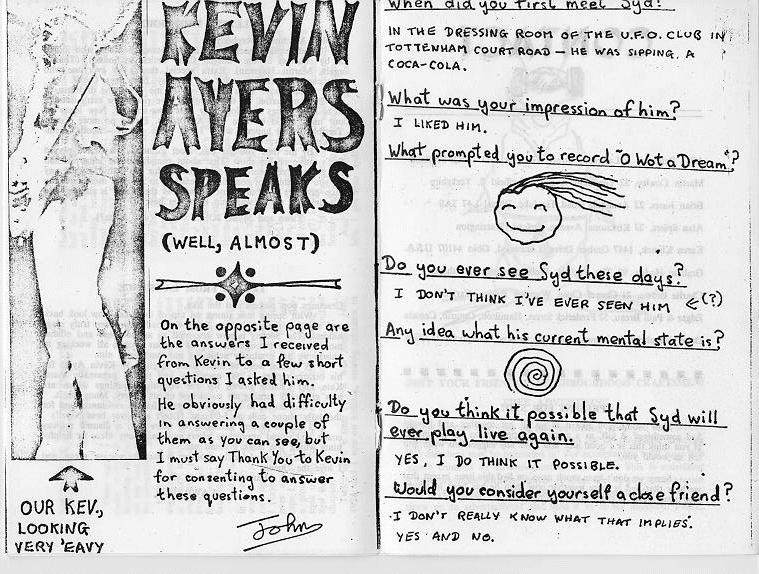 KEVIN
AYERS
SPEAKS
(WELL, ALMOST)
On the opposite page are
the answers I received
from Kevin to a few short
questions I asked him.
He obviously had difficulty
in answering a couple of
them as you can see, but
I must say Thank You to Kevin
for consenting to answer
these questions.
John
OUR KEV.,
LOOKING
VERY 'EAVY
When did you first meet Syd?
IN THE DRESSING ROOM OF THE U.F.O. CLUB IN
TOTTENHAM COURT ROAD – HE WAS SIPPING A
COCA-COLA.
What was your impression of him?
I LIKED HIM.
What prompted you to record "O Wot a Dream"?
Do you ever see Syd these days?
I DON'T THINK I'VE EVER SEEN HIM ← (?)
Any idea what his current mental state is?
Do you think it possible that Syd will
ever play live again.
YES, I DO THINK IT POSSIBLE.
Would you consider yourself a close friend?
I DON'T REALLY KNOW WHAT THAT IMPLIES.
YES AND NO.